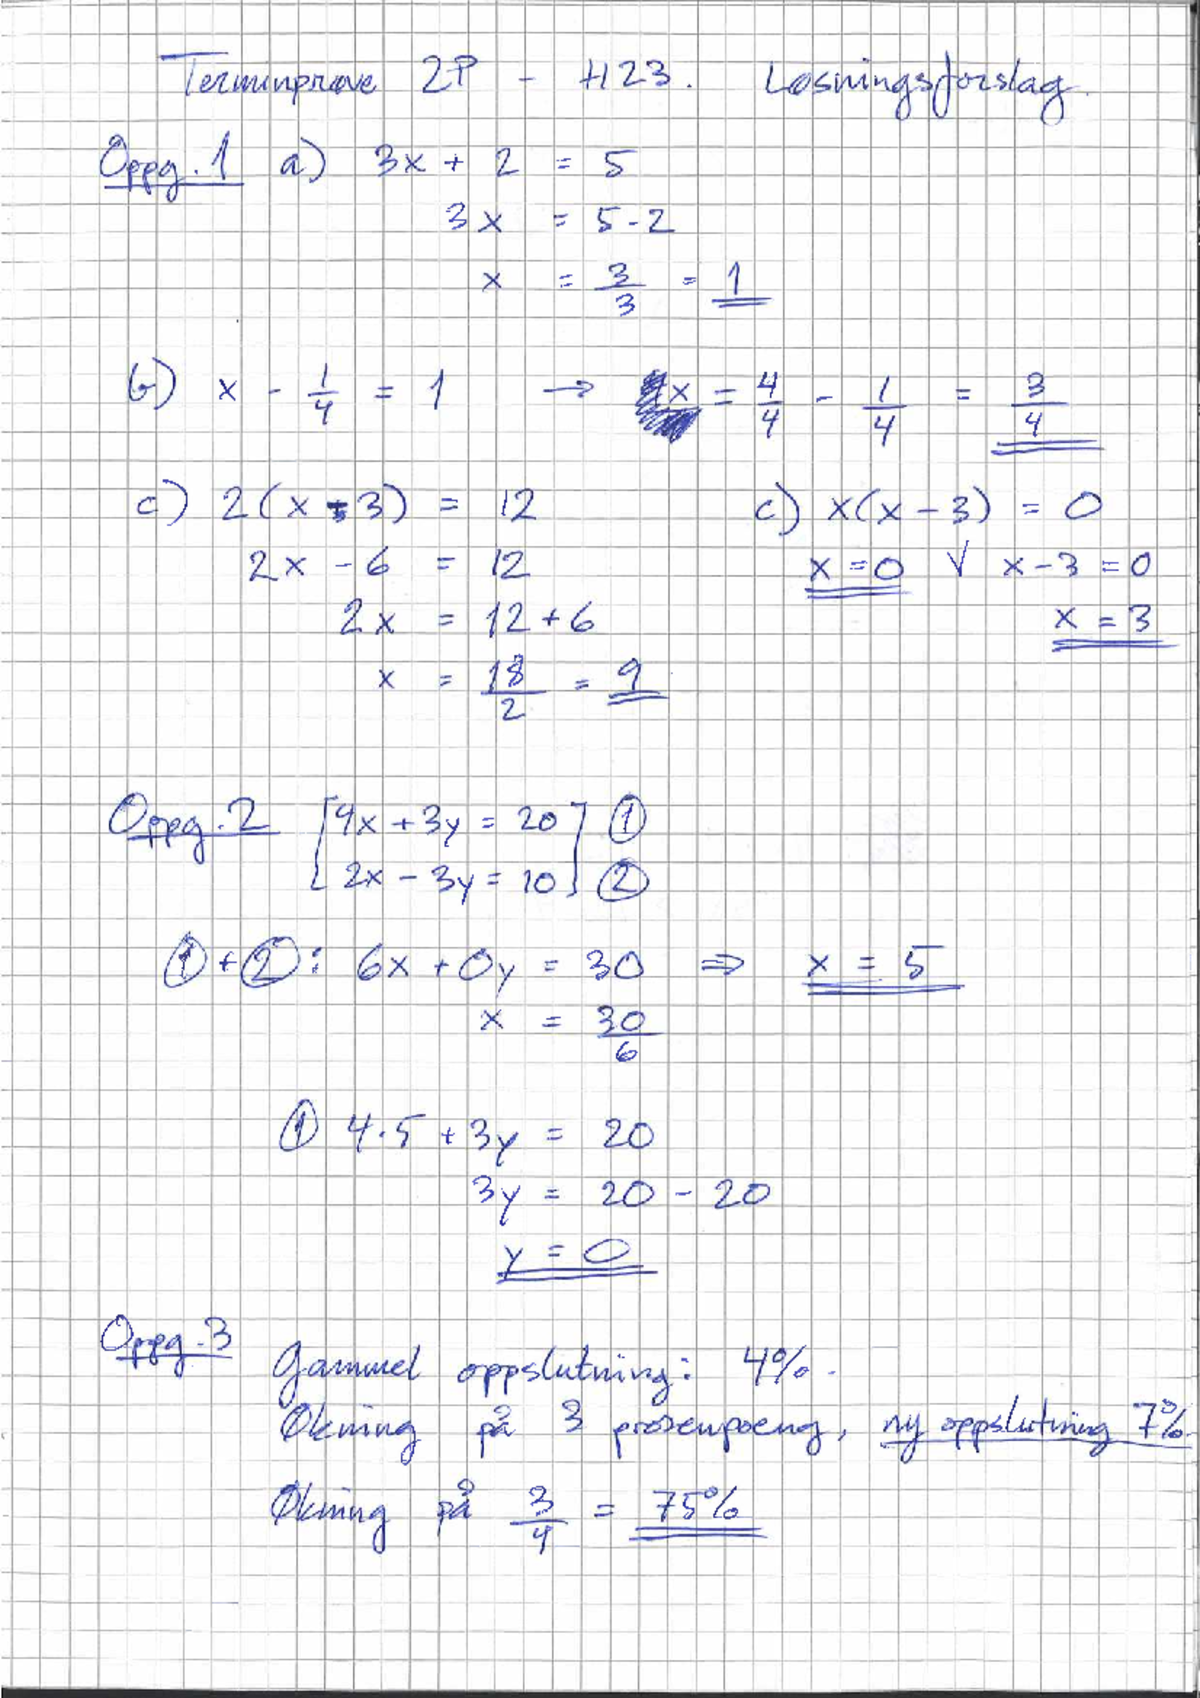 Terminprøve 2P - H23. Løsningsforslag.
Oppg. 1 a) 3x + 2 = 5
3x = 5 - 2
x = 3/3 = 1
b) x - 1/4 = 1 → x = 4/4 - 1/4 = 3/4
c) 2(x - 3) = 12
2x - 6 = 12
2x = 12 + 6
x = 18/2 = 9
c) x(x - 3) = 0
x = 0 ∨ x - 3 = 0
x = 3
Oppg. 2 [4x + 3y = 20] ①
[2x - 3y = 10] ②
① + ②: 6x + 0y = 30 ⇒ x = 5
x = 30/6
① 4·5 + 3y = 20
3y = 20 - 20
y = 0
Oppg. 3
Gammel oppslutning: 4%.
Økning på 3 prosenpoeng, ny oppslutning 7%.
Økning på 3/4 = 75%